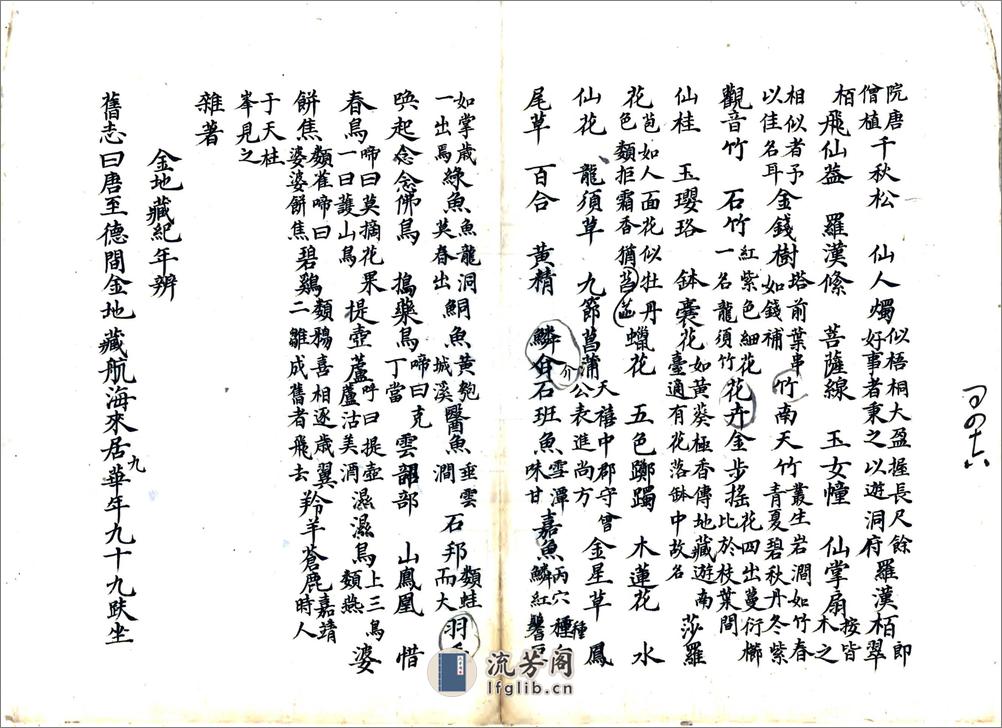 院唐僧植千秋松　仙人燭似梧桐大盈握長尺餘好事者秉之以遊洞府羅漢栢即翠
栢飛仙蓋　羅漢絛　菩薩線　玉女幢　仙掌扇按皆木之
相似者予以佳名耳金錢樹塔前葉串如錢補竹南天竹叢生岩澗如竹春青夏碧秋丹冬紫
觀音竹　石竹紅紫色細花一名龍須竹花卉金步搖花四出蔓衍櫛比於枝葉間
仙桂　玉瓔珞　鉢囊花如黃葵極香傳地藏遊南臺適有花落鉢中故名　莎羅
花苞如人面花似牡丹花色類拒霜香猶菡萏蠟花　五色躑躅　木蓮花　水
仙花　龍須草　九節菖蒲天禧中郡守曾公表進尚方金星草　鳳
尾草　百合　黃精　鱗介石班魚雪潭種味甘嘉魚丙穴種鱗紅
如掌歲一出焉綠魚魚龍洞英春出鮦魚黃匏城溪醫魚垂雲澗石邦類蛙而大羽
喚起　念念佛鳥　搗藥鳥啼曰克丁當　雲韶部　山鳳凰　惜
春鳥啼曰莫摘花果一曰護山鳥提壺蘆呼曰提壺蘆沽美酒濕濕鳥上三鳥類燕婆
餅焦類雀啼曰婆婆餅焦碧鷄類鴉喜相逐歲翼二雛成舊者飛去羚羊蒼鹿嘉靖時人
于天柱峯見之
雜著
金地藏紀年辨
舊志曰唐至德間金地藏航海來居九華年九十九趺坐
流芳阁
lfglib.cn